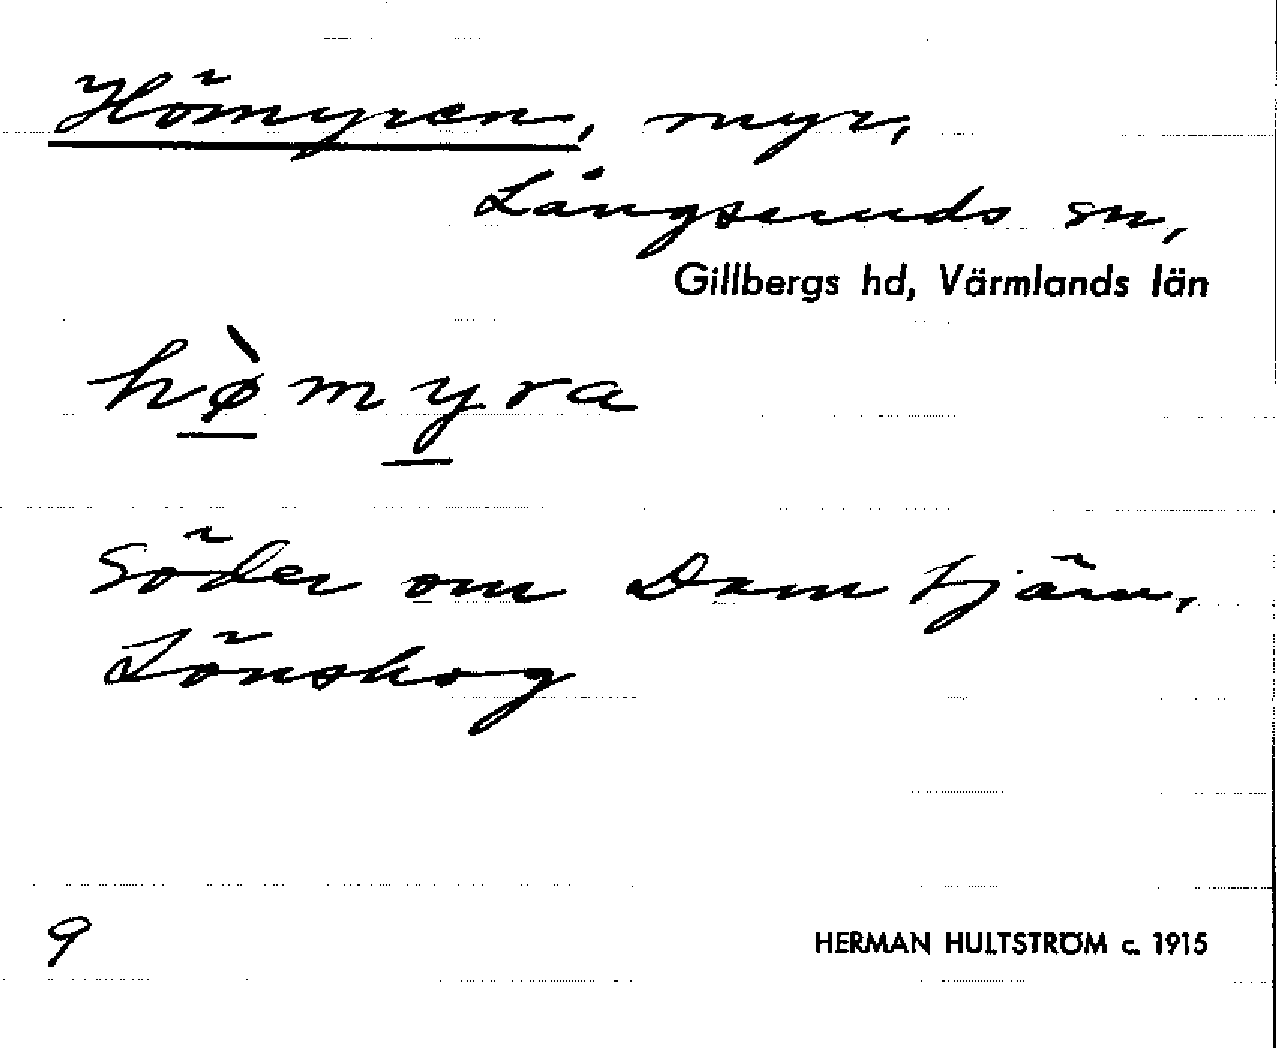 Hömyren, myr,
Långseruds sn,
Gillbergs hd, Värmlands län
hø̀myra
Söder om Damtjärn,
Lönskog
9
HERMAN HULTSTRÖM c. 1915